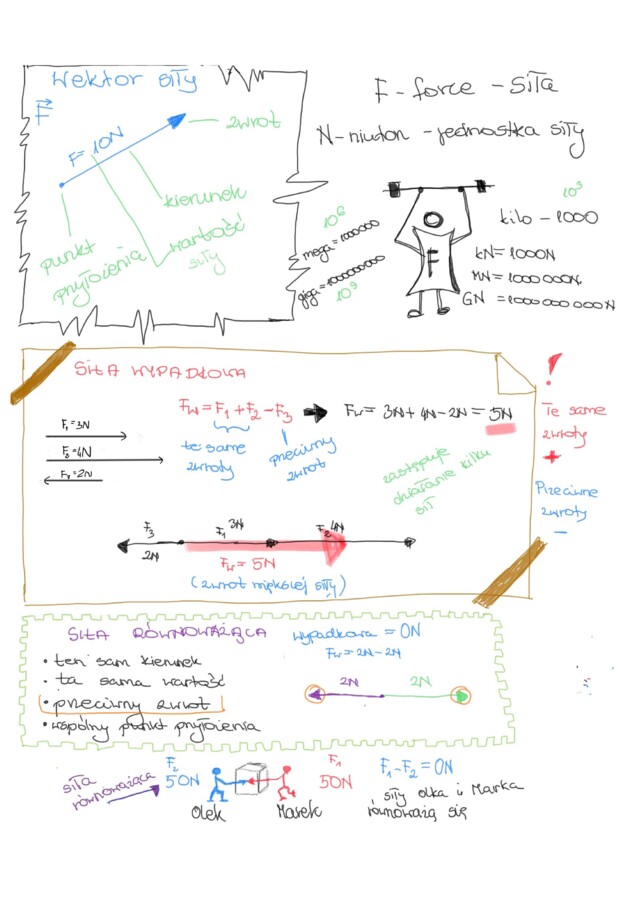 Wektor siły
F
F=10N
zwrot
kierunek
wartość
siły
punkt
przyłożenia
F - force - siła
N - niuton - jednostka siły
10⁶
mega = 1000000
giga = 1000000000
10⁹
F
10³
kilo - 1000
kN = 1000N
MN = 1000 000N
GN = 1000 000 000N
SIŁA WYPADKOWA
F₁=3N
F₂=4N
F₃=2N
Fw = F₁ + F₂ - F₃
te same
zwroty
przeciwny
zwrot
Fw = 3N + 4N - 2N = 5N
zastępuje
działanie kilku
sił
!
Te same
zwroty
+
Przeciwne
zwroty
-
F₃
2N
F₁ 3N
F₂ 4N
Fw = 5N
(zwrot większej siły)
SIŁA RÓWNOWAŻĄCA
• ten sam kierunek
• ta sama wartość
• przeciwny zwrot
• wspólny punkt przyłożenia
wypadkowa = 0N
Fw = 2N - 2N
2N
2N
siła
równoważąca
F₂
50N
Olek
Marek
F₁
50N
F₁ - F₂ = 0N
siły Olka i Marka
równoważą się